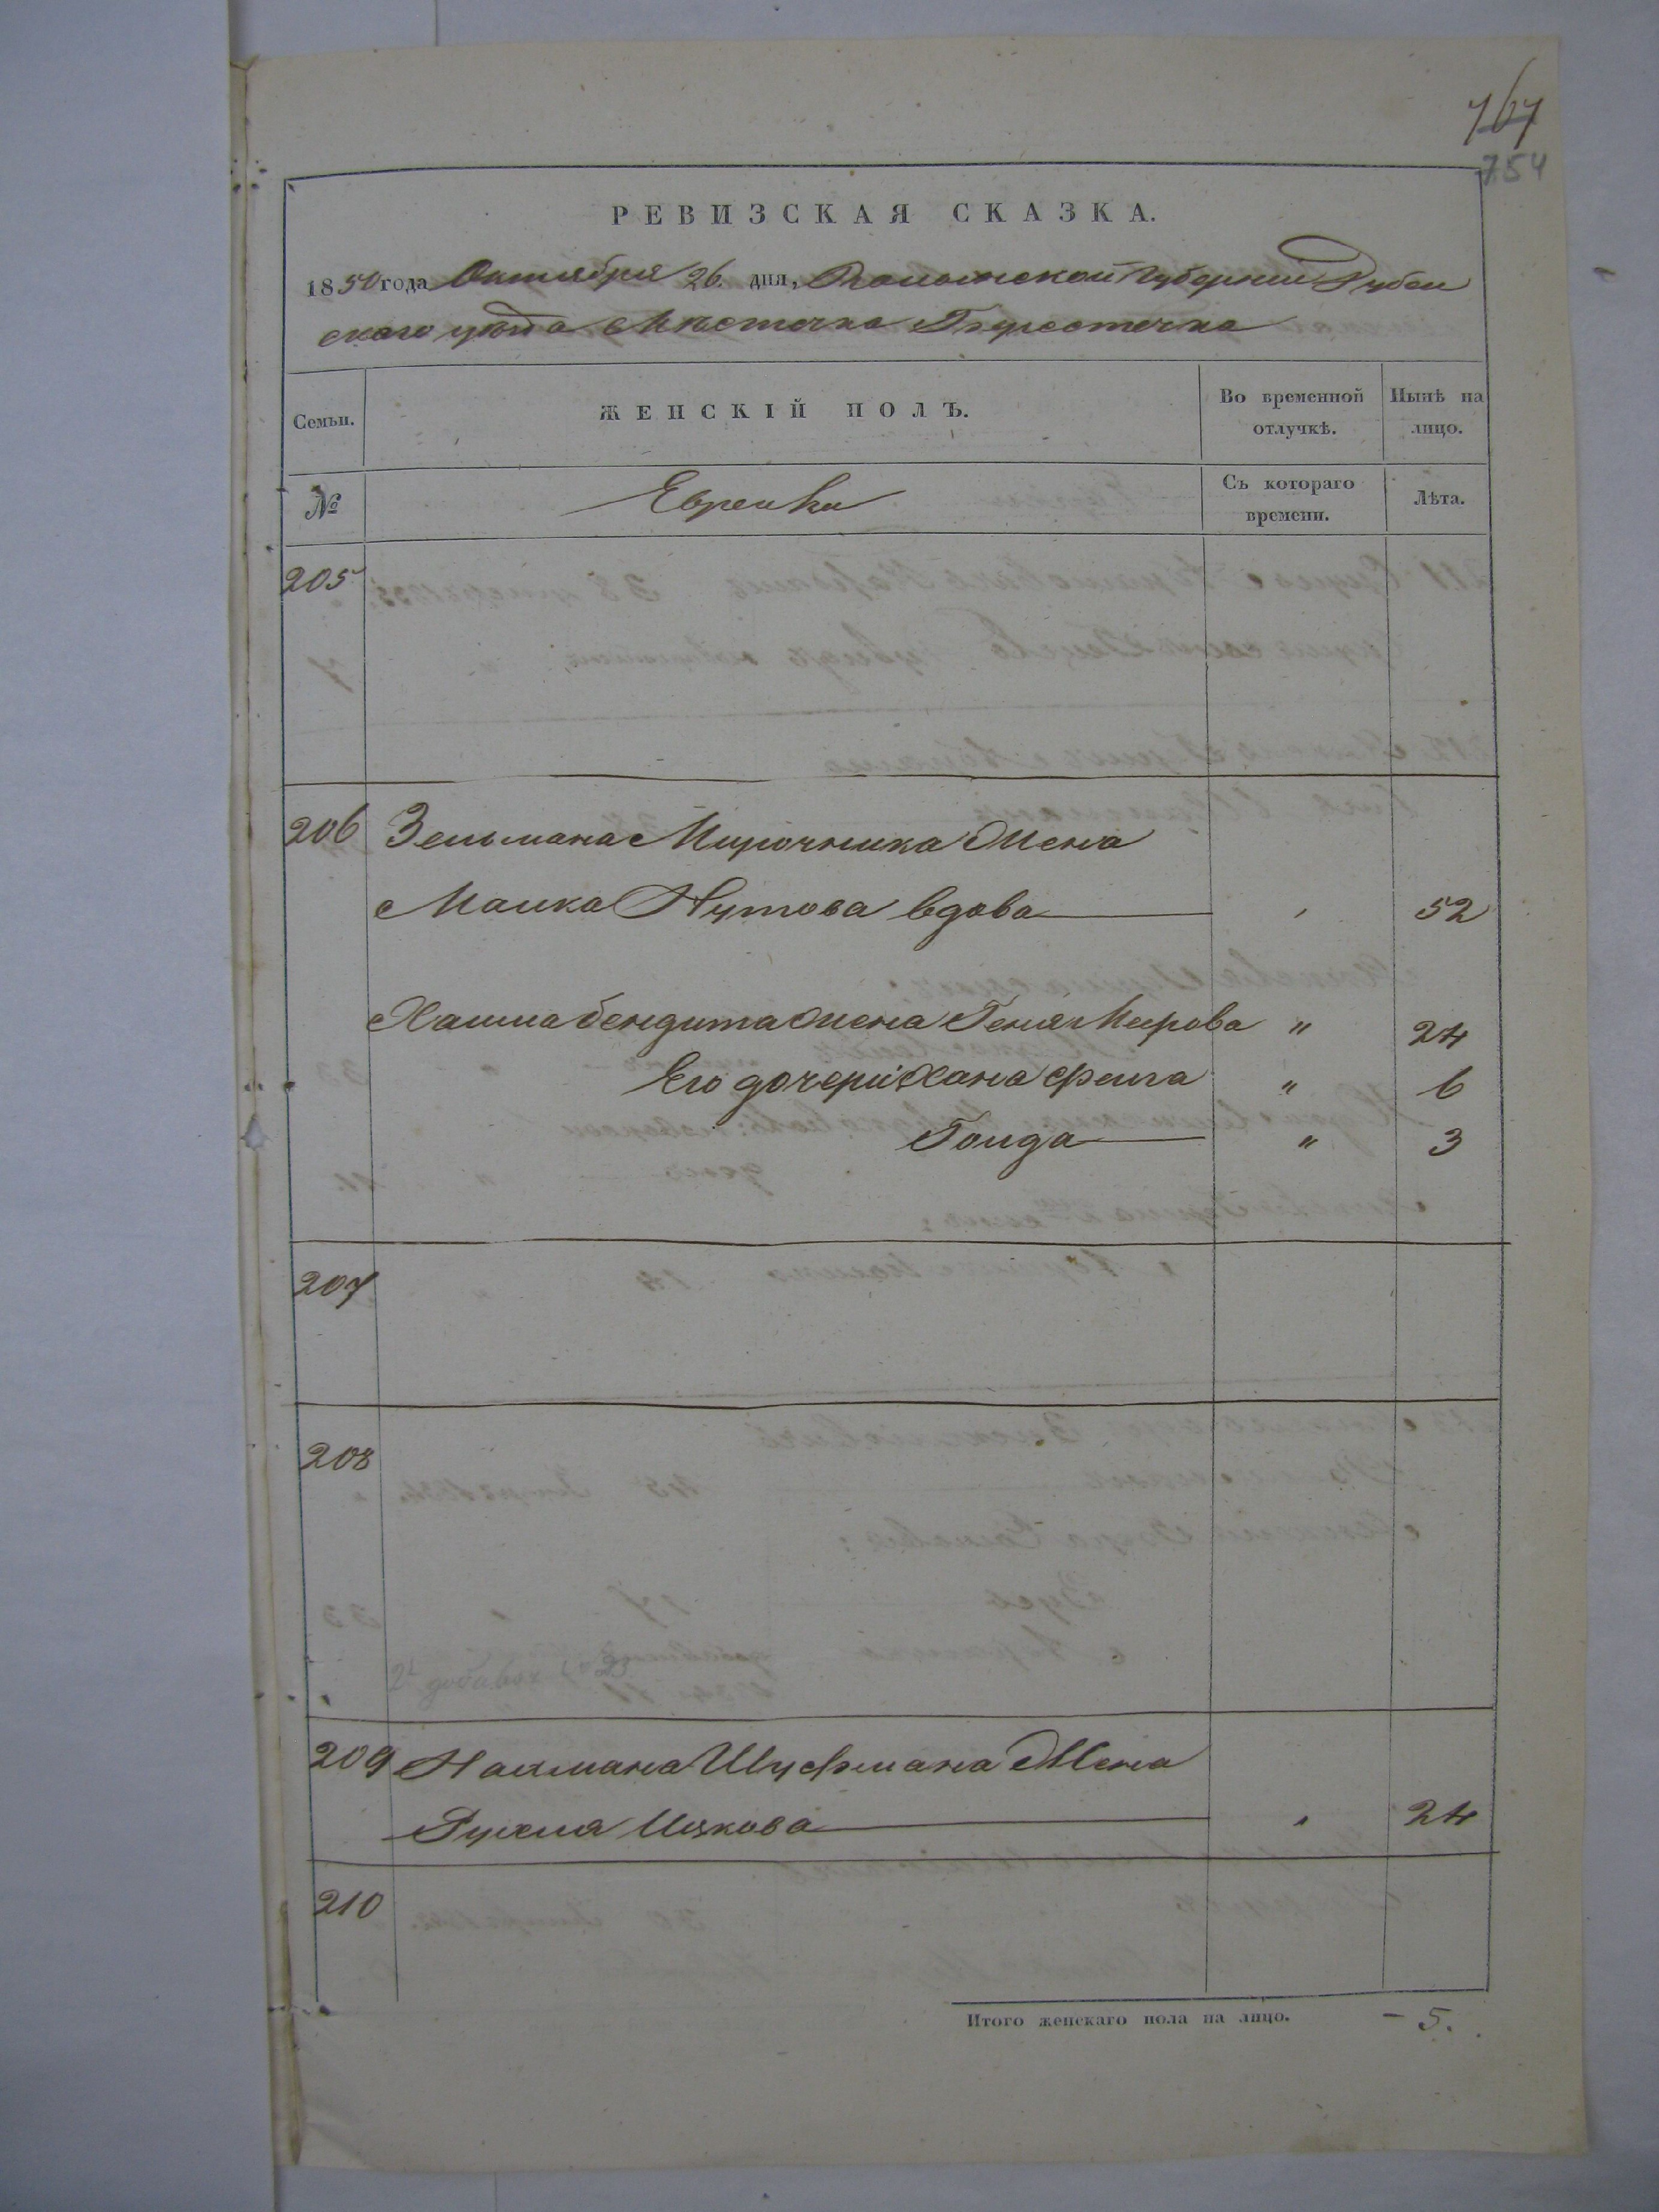 767
754
РЕВИЗСКАЯ СКАЗКА.
1850 года Октября 26 дня, Волынской Губернии Дубен
скаго уезда Местечка Берестечка
Семьи.
ЖЕНСКІЙ ПОЛЪ.
Во временной отлучкѣ.
Нынѣ на лицо.
№
Еврейки
Съ котораго времени.
Лѣта.
205
206 Зельмана Мирочника Жена
Малка Нутова вдова , 52
Хаима бендита жена Геня Меерова " 24
Его дочери Хана Фейга " 6
Голда " 3
207
208
209 Нахмана Шуфмана Жена
Рухля Ицкова , 24
210
Итого женскаго пола на лицо. – 5.